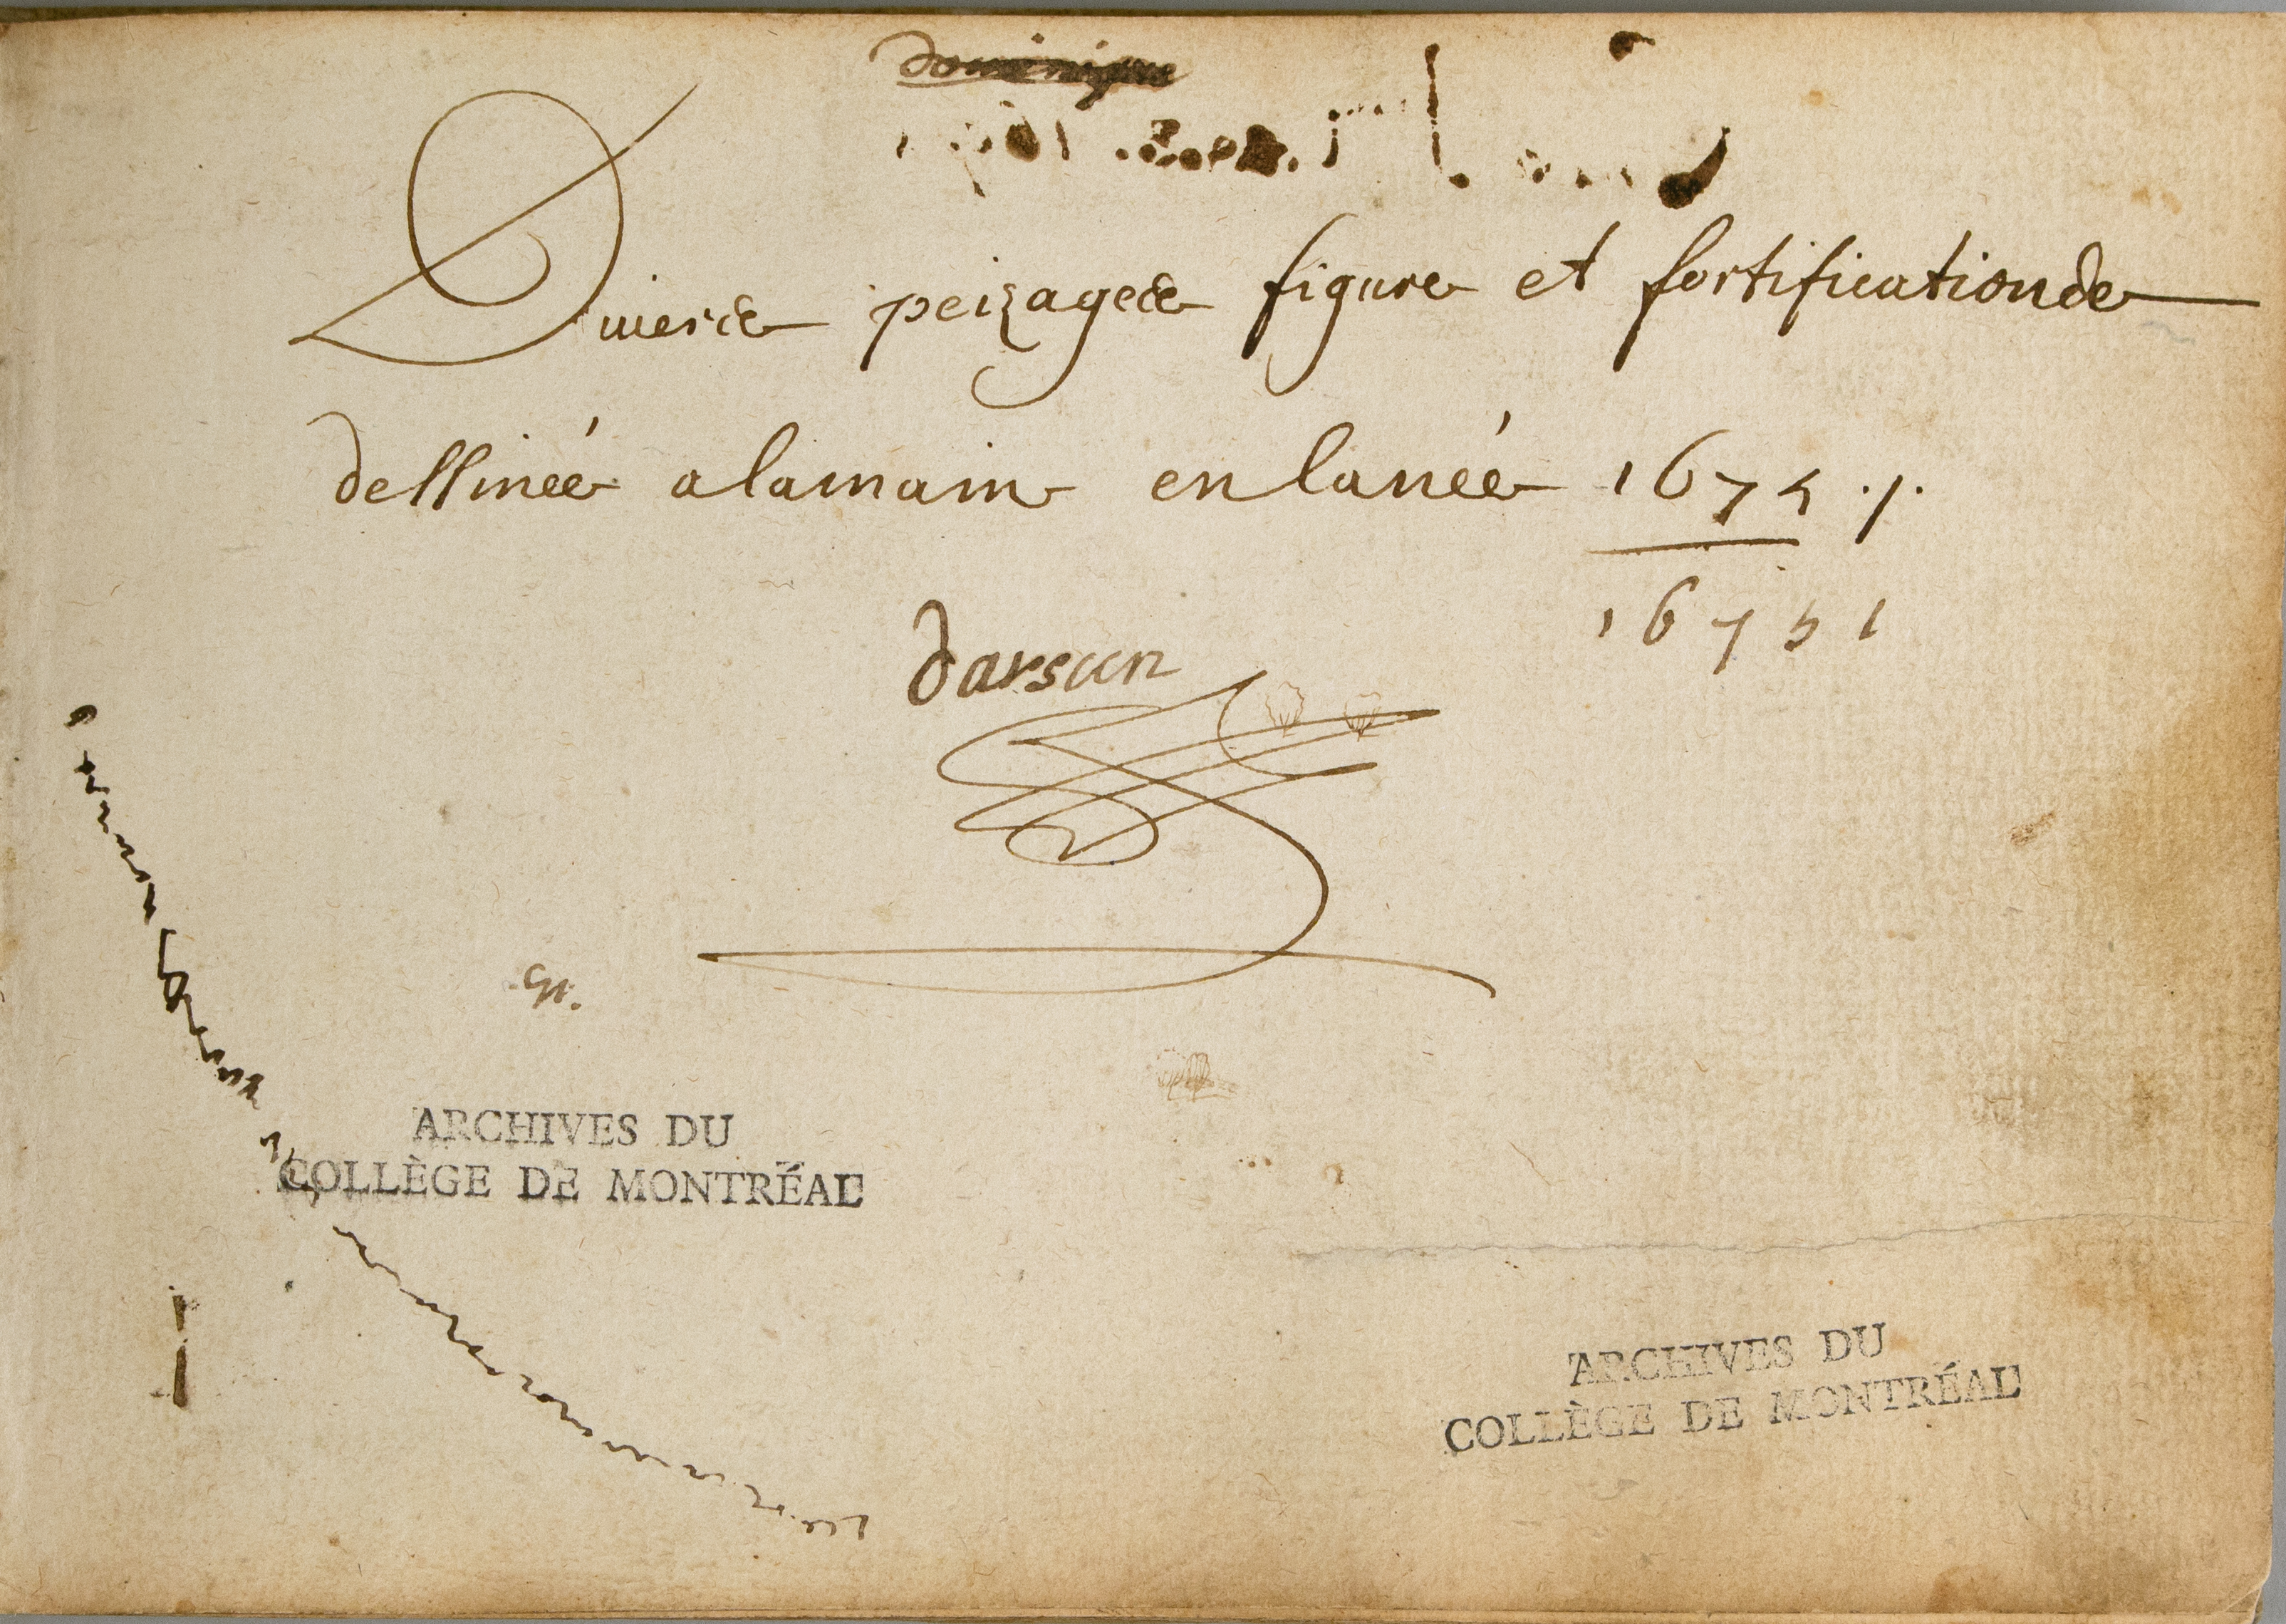 dominique
Diverse peizagede figure et fortificationde
dessinée alamain en lanée 1675 ./.
16751
darsun
ARCHIVES DU
COLLÈGE DE MONTRÉAL
ARCHIVES DU
COLLÈGE DE MONTRÉAL